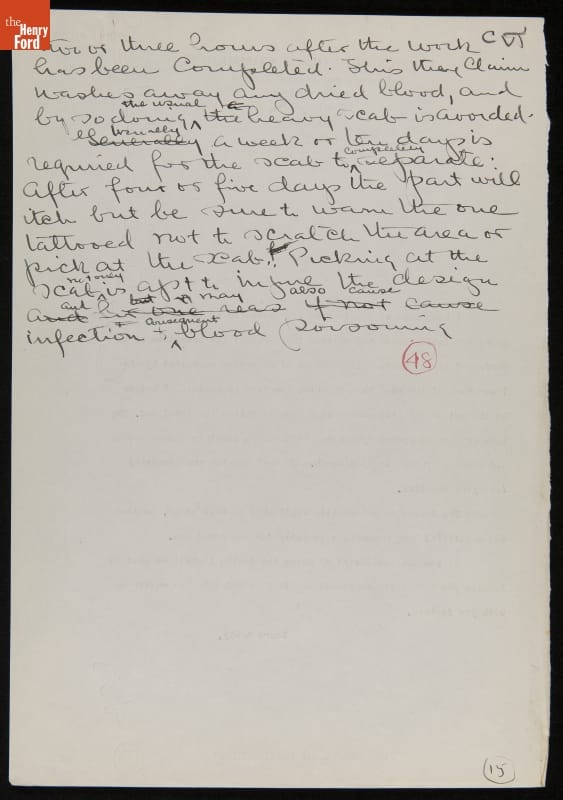 the
Henry
Ford
two or three hours after the work
has been completed. This they claim
washes away any dried blood, and
the usual
by so doing the heavy scab is avoided.
usually
Generally a week or ten days is
completely
required for the scab to separate.
After four or five days the part will
itch but be sure to warn the one
tattooed not to scratch the area or
pick at the scab! Picking at the
not only
scab is apt to injure the design
but may also cause
and if not cause
infection + blood poisoning
48
15